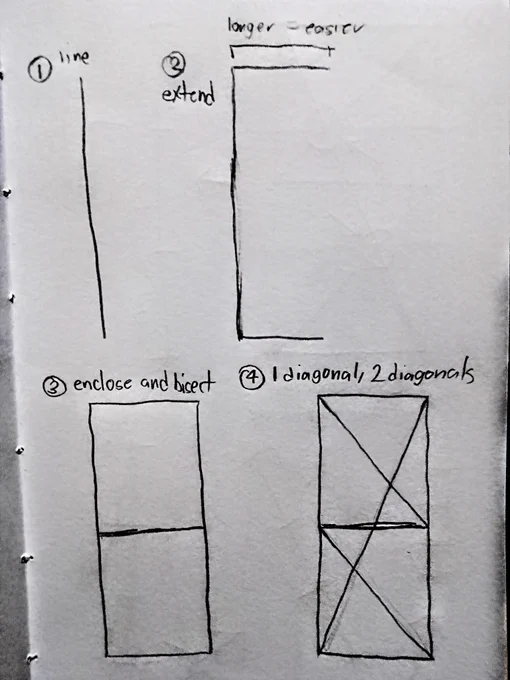 longer = easier
① line
② extend
③ enclose and bisect
④ 1 diagonal, 2 diagonals